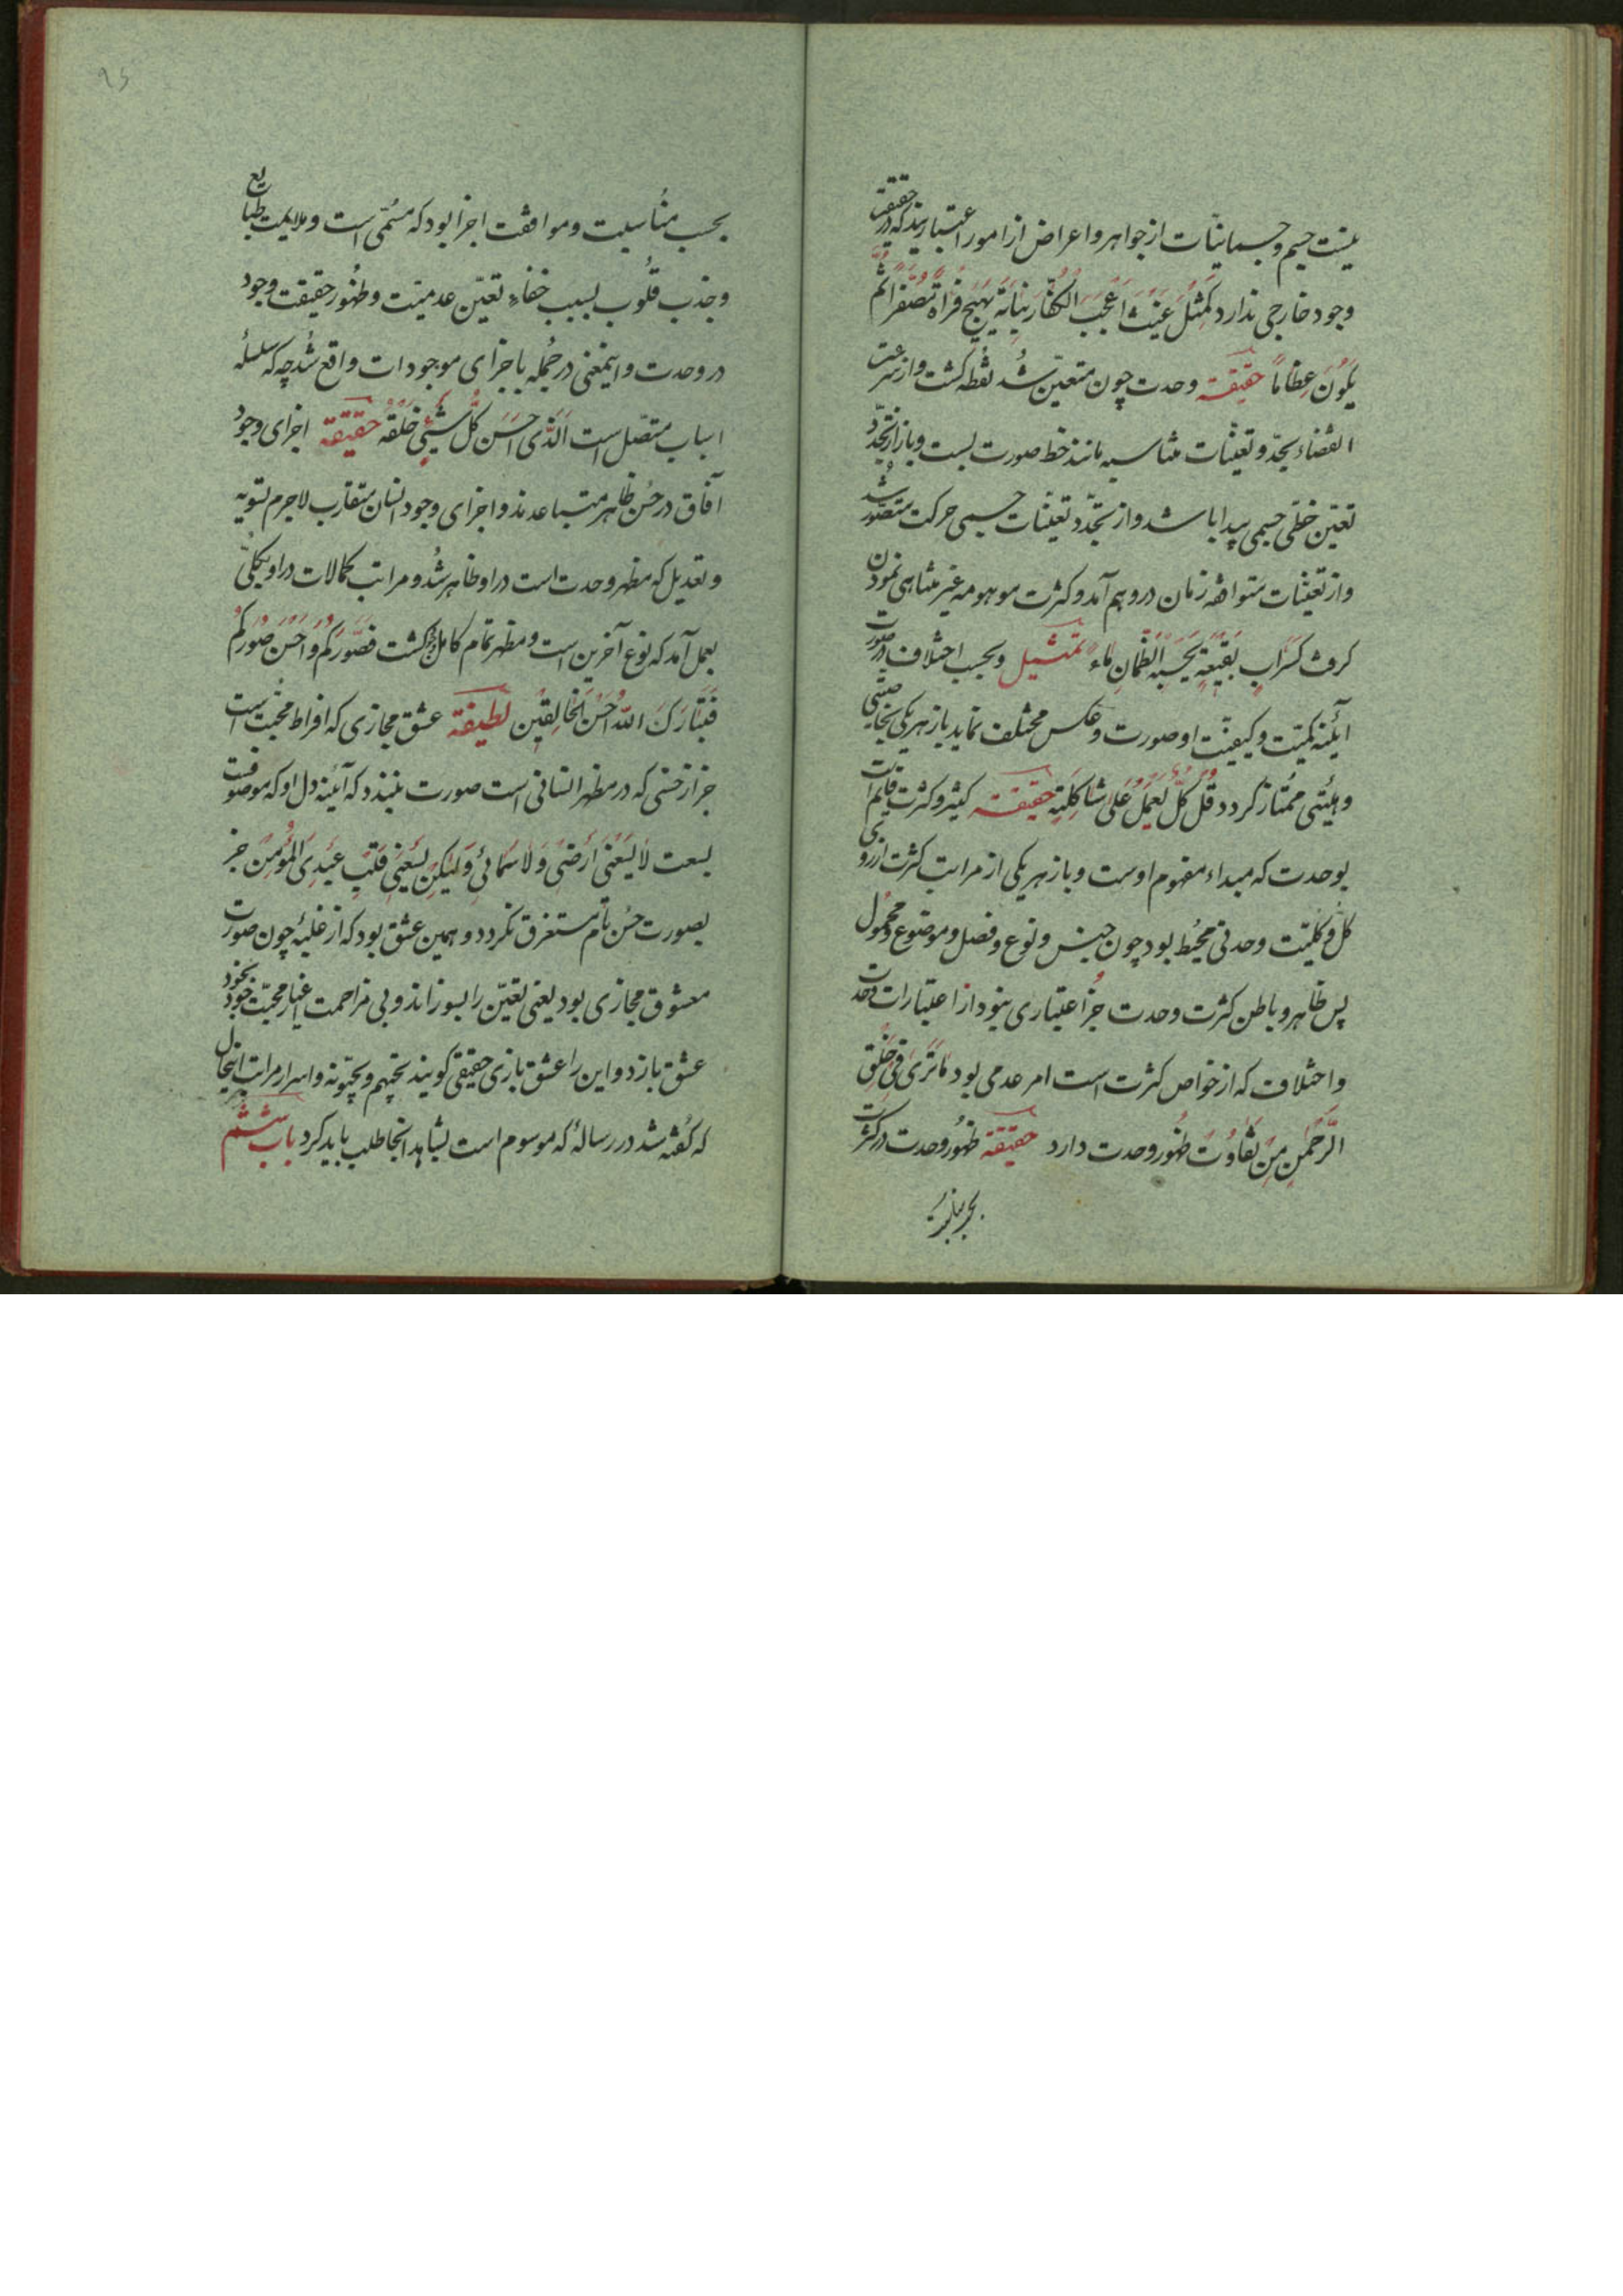 نیست جسم و جسمانیات از جواهر و اعراض از امور اعتباریند که در حقیقت
وجود خارجی ندارد کَمَثَلِ غَیْثٍ اَعْجَبَ الکُفّارَ نَباتُهُ ثمّ یَهیجُ فَتَراهُ مُصْفَرّاً ثُمَّ
یَکُونُ حُطاماً حقیقة وحدت چون متعیّن شد نقطه گشت و از سرعت
انقضاء و تجدّد تعیّنات متناسبه مانند خط صورت بست و باز از تجدّد
تعیّن خطّی جسمی پیدا باشد و از تجدّد تعیّنات جسمی حرکت متصوّر شد
و از تعیّنات متوافقه زمان در وهم آمد و کثرت موهومه غیر متناهی نمودن
گرفت کَسَرابٍ بِقیعَةٍ یَحْسَبُهُ الظَّمْانُ ماءً تمثیل و بحسب اختلاف در صورت
آئینه کمیّت و کیفیّت او صورت و عکس مختلف نماید باز هر یکی بخاصیّتی
و هیئتی ممتاز گردد قُلْ کُلٌّ یَعْمَلُ عَلی شاکِلَتِهِ حقیقة کثیر و کثرت قایم است
بوحدت که مبداء مفهوم اوست و باز هر یکی از مراتب کثرت از روی
کلّ و کلّیّت وحدتی محیط بود چون جنس و نوع و فصل و موضوع و محمول
پس ظاهر و باطن کثرت وحدت جز اعتباری نبود از اعتبارات وحدت
و اختلاف که از خواص کثرت است امر عدمی بود ما تَری فی خَلْقِ
الرَّحْمنِ مِنْ تَفاوُتٍ ظهور وحدت دارد حقیقة ظهور وحدت در کثرت
بحسب مناسبت
بحسب مناسبت و موافقت اجزا بود که مسمّی است و ملایمت طبایع
و جذب قلوب بسبب خفاء تعیّن عدمیّت و ظهور حقیقت وجود
در وحدت و اینمعنی در جمله باجزای موجودات واقع شد چه که سلسله
اسباب متصل است اَلَّذی اَحْسَنَ کُلَّ شَیْئٍ خَلَقَهُ حقیقة اجزای وجود
آفاق در حسّ ظاهر متباعدند و اجزای وجود انسان متقارب لاجرم تسویه
و تعدیل که مظهر وحدت است در او ظاهر شد و مراتب کمالات در او بکلّی
بعمل آمد که نوع آخرین است و مظهر تمام کامل گشت فَصَوَّرَکُمْ وَ اَحْسَنَ صُوَرَکُمْ
فَتَبارَکَ اللّهُ اَحْسَنُ الخالِقینَ لطیفة عشق مجازی که افراط محبّت است
جز از حسنی که در مظهر انسانی است صورت نبندد که آئینه دل او که موصوفست
بسعت لا یَسَعُنی اَرْضی وَ لا سَمائی وَ لکِنْ یَسَعُنی قَلْبُ عَبْدِیَ المُؤْمِنِ جز
بصورت حسن تام مستغرق نگردد و همین عشق بود که از غلبهٔ چون صورت
معشوق مجازی بود یعنی تعیّن را بسوزاند و بی مزاحمت اغیار محبّت خود بخود
عشق بازد و این را عشق بازی حقیقی گویند یُحِبُّهُمْ وَ یُحِبُّونَهُ و اسرار مراتب اینحال
که گفته شد در رسالهٔ که موسوم است بشاهد انجا طلب باید کرد باب ششم